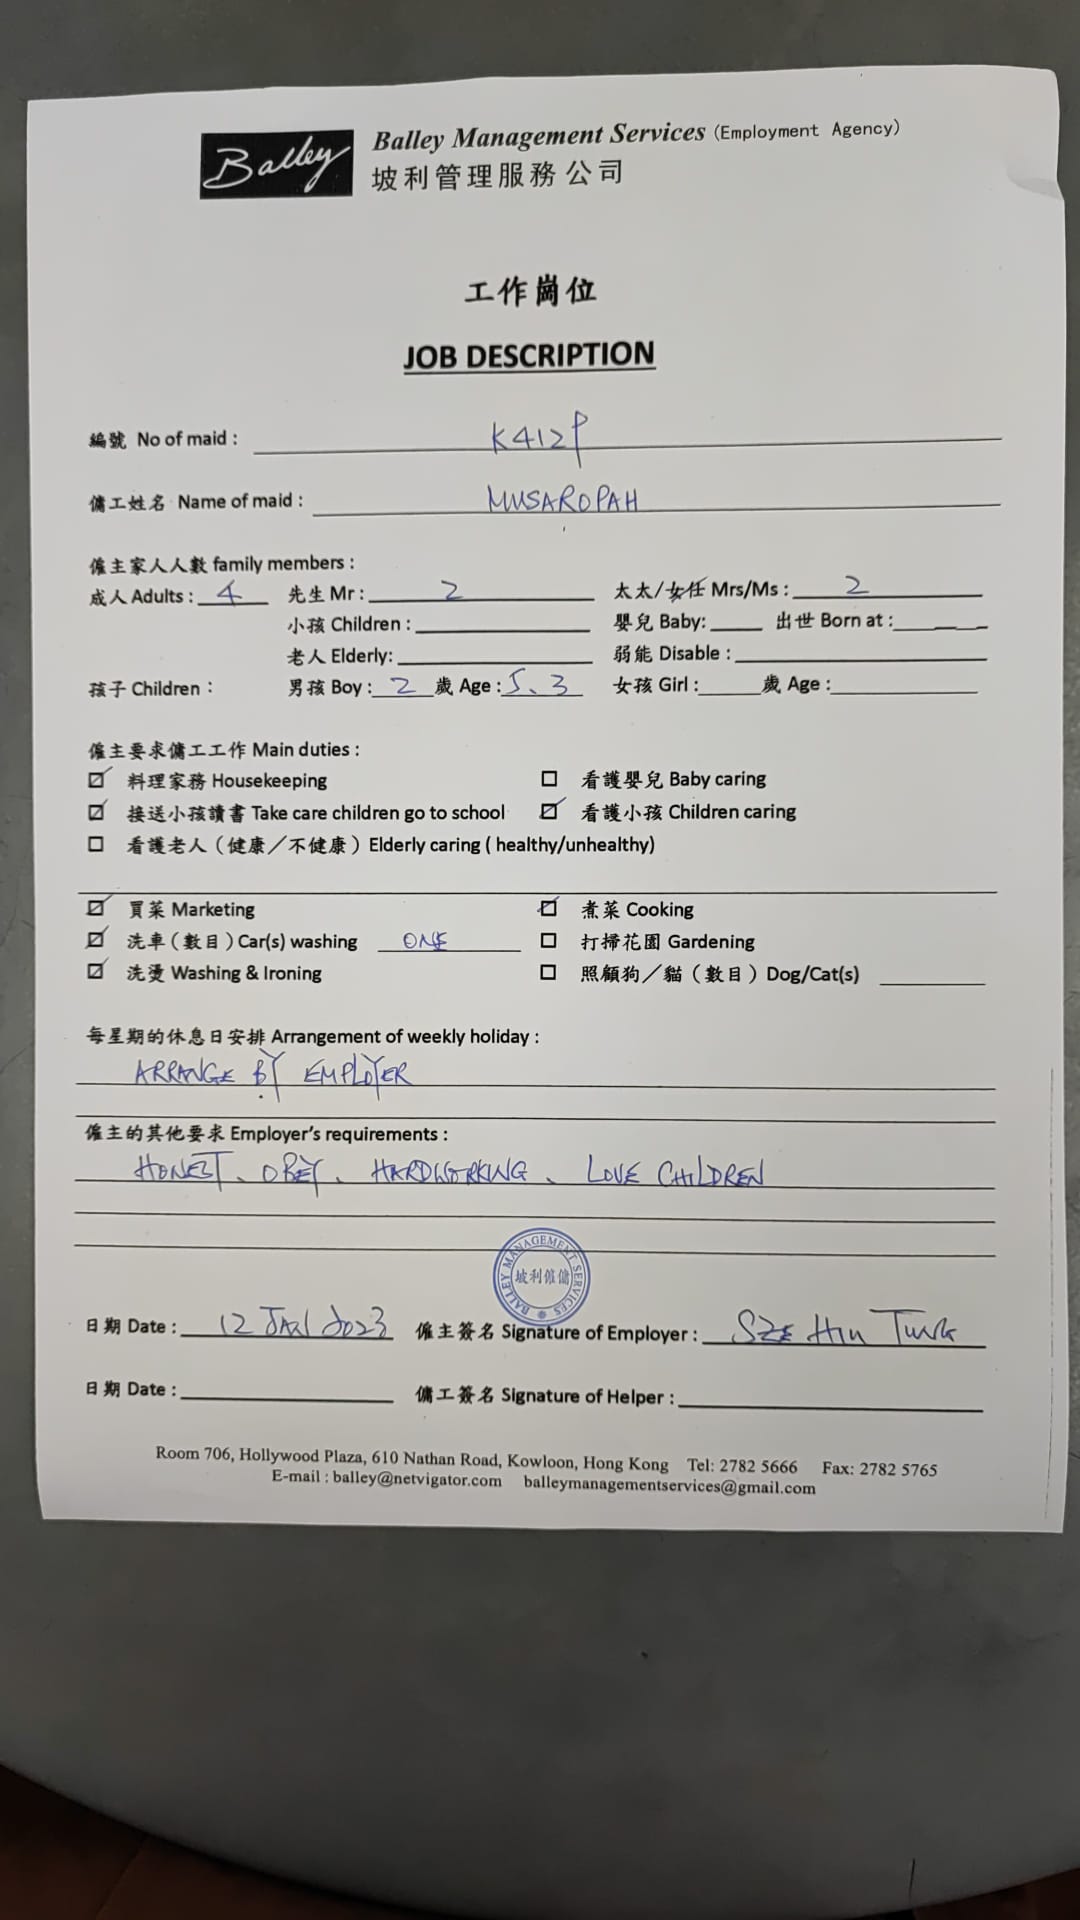 Balley
Balley Management Services (Employment Agency)
坡利管理服務公司
工作崗位
JOB DESCRIPTION
編號 No of maid : K412P
傭工姓名 Name of maid : MUSAROPAH
僱主家人人數 family members :
成人 Adults : 4 先生 Mr : 2 太太/女任 Mrs/Ms : 2
小孩 Children : 嬰兒 Baby: 出世 Born at :
老人 Elderly: 弱能 Disable :
孩子 Children : 男孩 Boy : 2 歲 Age : 5、3 女孩 Girl : 歲 Age :
僱主要求傭工工作 Main duties :
☑ 料理家務 Housekeeping ☐ 看護嬰兒 Baby caring
☑ 接送小孩讀書 Take care children go to school ☑ 看護小孩 Children caring
☐ 看護老人（健康／不健康）Elderly caring ( healthy/unhealthy)
☑ 買菜 Marketing ☑ 煮菜 Cooking
☑ 洗車（數目）Car(s) washing ONE ☐ 打掃花園 Gardening
☑ 洗燙 Washing & Ironing ☐ 照顧狗／貓（數目）Dog/Cat(s)
每星期的休息日安排 Arrangement of weekly holiday :
ARRANGE BY EMPLOYER
僱主的其他要求 Employer's requirements :
HONEST、OBEY、HARDWORKING、LOVE CHILDREN
BALLEY MANAGEMENT SERVICES
坡利僱傭
日期 Date : 12 JAN 2023 僱主簽名 Signature of Employer : SZE HIN TUNG
日期 Date : 傭工簽名 Signature of Helper :
Room 706, Hollywood Plaza, 610 Nathan Road, Kowloon, Hong Kong Tel: 2782 5666 Fax: 2782 5765
E-mail : balley@netvigator.com balleymanagementservices@gmail.com